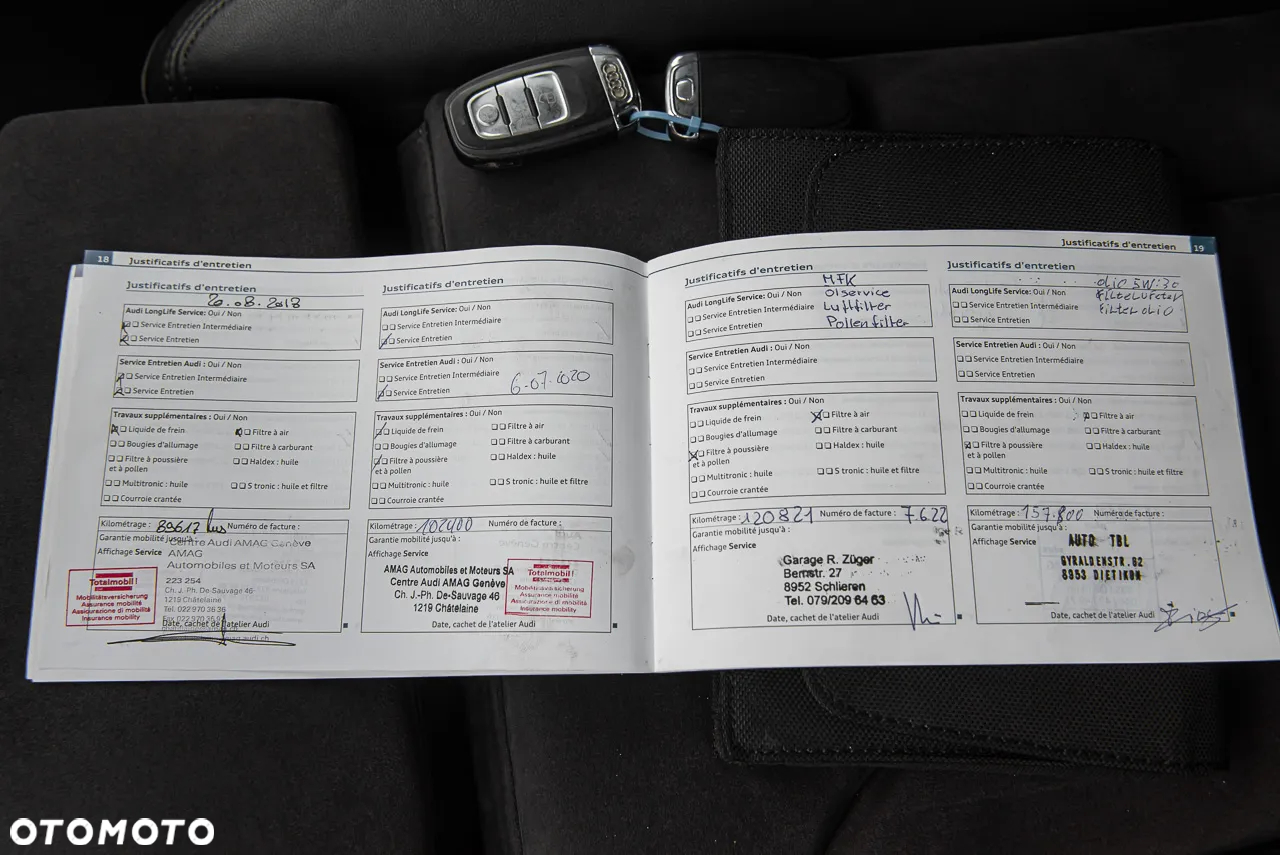 18
Justificatifs d'entretien
Justificatifs d'entretien
20.08.2018
Audi LongLife Service: Oui / Non
Service Entretien Intermédiaire
Service Entretien
Service Entretien Audi : Oui / Non
Service Entretien Intermédiaire
Service Entretien
Travaux supplémentaires : Oui / Non
Liquide de frein
Filtre à air
Bougies d'allumage
Filtre à carburant
Filtre à poussière
et à pollen
Haldex : huile
Multitronic : huile
S tronic : huile et filtre
Courroie crantée
Kilométrage : 89617 kms Numéro de facture :
Garantie mobilité jusqu'à :
Centre Audi AMAG Genève
Affichage Service
AMAG
Automobiles et Moteurs SA
223 254
Ch. J. Ph. De-Sauvage 46
1219 Châtelaine
Tél. 022 970 36 36
Totalmobil!
Mobilitätsversicherung
Assurance mobilité
Assicurazione di mobilità
Insurance mobility
Date, cachet de l'atelier Audi
Justificatifs d'entretien
Audi LongLife Service: Oui / Non
Service Entretien Intermédiaire
Service Entretien
Service Entretien Audi : Oui / Non
Service Entretien Intermédiaire
Service Entretien
6.07.2020
Travaux supplémentaires : Oui / Non
Liquide de frein
Filtre à air
Bougies d'allumage
Filtre à carburant
Filtre à poussière
et à pollen
Haldex : huile
Multitronic : huile
S tronic : huile et filtre
Courroie crantée
Kilométrage : 102400 Numéro de facture :
Garantie mobilité jusqu'à :
Affichage Service
AMAG Automobiles et Moteurs SA
Centre Audi AMAG Genève
Ch. J.-Ph. De-Sauvage 46
1219 Châtelaine
Totalmobil!
Mobilitätsversicherung
Assurance mobilité
Assicurazione di mobilità
Insurance mobility
Date, cachet de l'atelier Audi
Justificatifs d'entretien
19
Justificatifs d'entretien
MFK
Audi LongLife Service: Oui / Non
Ölservice
Service Entretien Intermédiaire
Luftfilter
Service Entretien
Pollenfilter
Service Entretien Audi : Oui / Non
Service Entretien Intermédiaire
Service Entretien
Travaux supplémentaires : Oui / Non
Liquide de frein
Filtre à air
Bougies d'allumage
Filtre à carburant
Filtre à poussière
et à pollen
Haldex : huile
Multitronic : huile
S tronic : huile et filtre
Courroie crantée
Kilométrage : 120821 Numéro de facture : 7.6.22
Garantie mobilité jusqu'à :
Affichage Service
Garage R. Züger
Bernstr. 27
8952 Schlieren
Tel. 079/209 64 63
Date, cachet de l'atelier Audi
Justificatifs d'entretien
5W:30
Audi LongLife Service: Oui / Non
Service Entretien Intermédiaire
Service Entretien
Service Entretien Audi : Oui / Non
Service Entretien Intermédiaire
Service Entretien
Travaux supplémentaires : Oui / Non
Liquide de frein
Filtre à air
Bougies d'allumage
Filtre à carburant
Filtre à poussière
et à pollen
Haldex : huile
Multitronic : huile
S tronic : huile et filtre
Courroie crantée
Kilométrage : 157.800 Numéro de facture :
Garantie mobilité jusqu'à :
Affichage Service
AUTO TBL
GYRALDENSTR.82
8953 DIETIKON
Date, cachet de l'atelier Audi
OTOMOTO